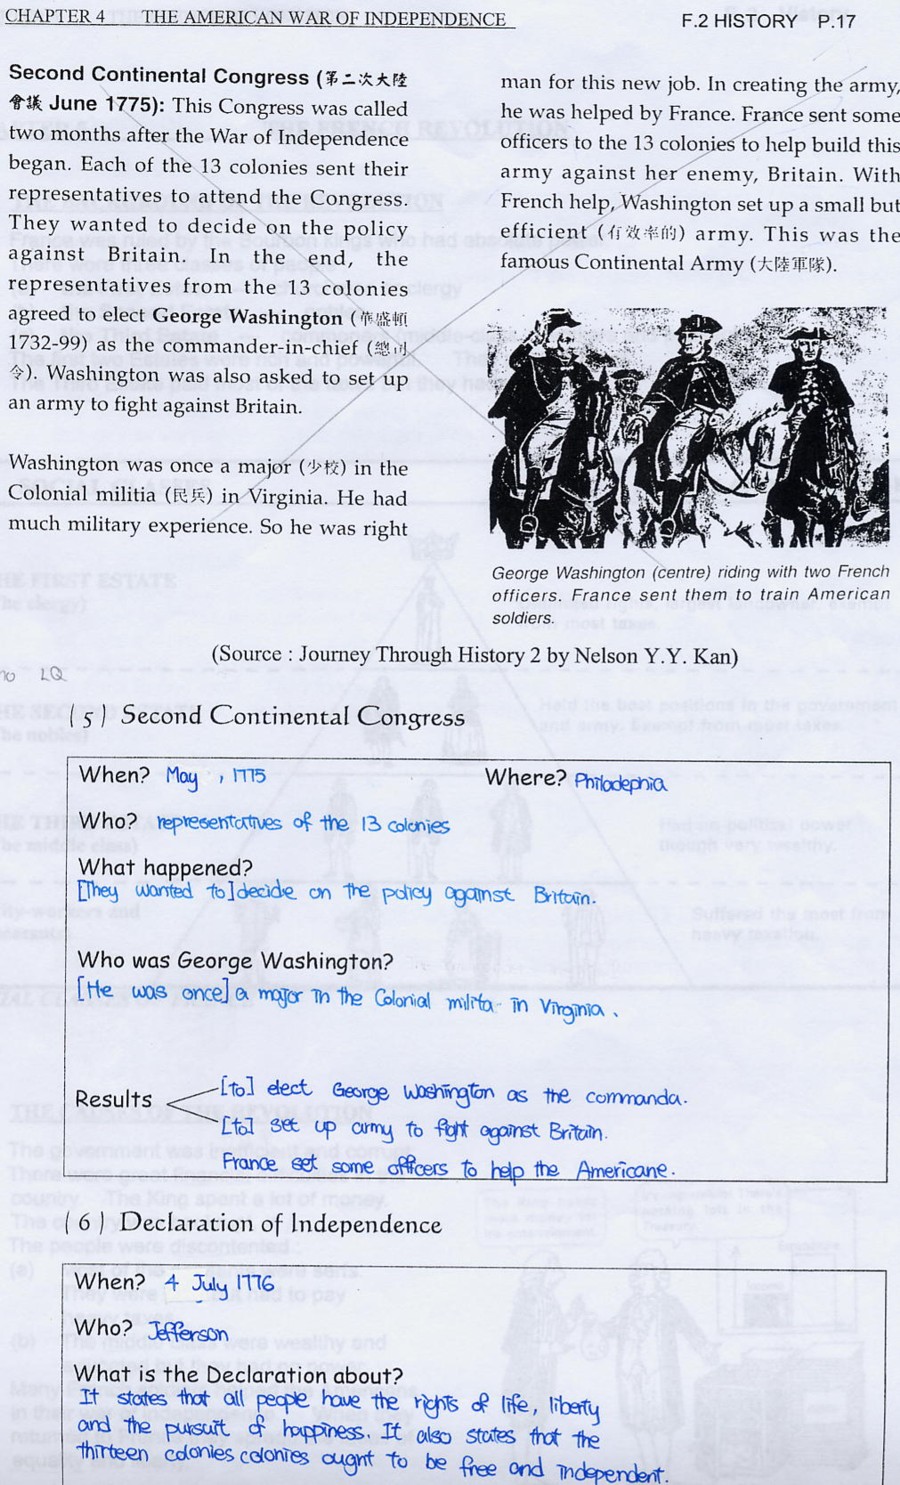 CHAPTER 4 THE AMERICAN WAR OF INDEPENDENCE
F.2 HISTORY P.17
Second Continental Congress (第二次大陸
會議 June 1775): This Congress was called
two months after the War of Independence
began. Each of the 13 colonies sent their
representatives to attend the Congress.
They wanted to decide on the policy
against Britain. In the end, the
representatives from the 13 colonies
agreed to elect George Washington (華盛頓
1732-99) as the commander-in-chief (總司
令). Washington was also asked to set up
an army to fight against Britain.
Washington was once a major (少校) in the
Colonial militia (民兵) in Virginia. He had
much military experience. So he was right
man for this new job. In creating the army,
he was helped by France. France sent some
officers to the 13 colonies to help build this
army against her enemy, Britain. With
French help, Washington set up a small but
efficient (有效率的) army. This was the
famous Continental Army (大陸軍隊).
George Washington (centre) riding with two French
officers. France sent them to train American
soldiers.
(Source : Journey Through History 2 by Nelson Y.Y. Kan)
no LQ
(5) Second Continental Congress
When? May , 1775
Where? Philadephia
Who? representatives of the 13 colonies
What happened?
[They wanted to] decide on the policy against Britain.
Who was George Washington?
[He was once] a major in the Colonial milita in Virginia.
Results
[to] elect George Washington as the commanda.
[to] set up army to fight against Britain.
France set some officers to help the Americane.
(6) Declaration of Independence
When? 4 July 1776
Who? Jefferson
What is the Declaration about?
It states that all people have the rights of life, liberty
and the pursuit of happiness. It also states that the
thirteen colonies colonies ought to be free and independent.